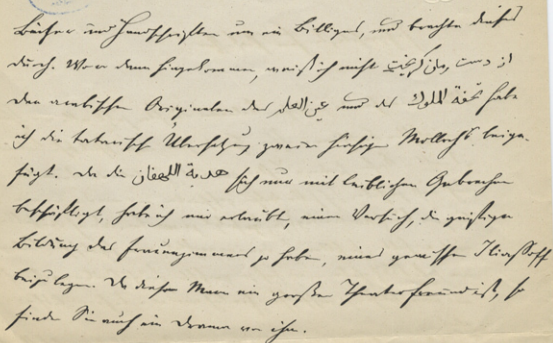 Bücher und Handschriften um ein Billiges, und brachte dieses
durch. Wer dann hingekommen, weiß ich nicht از دست من گریخت
den arabischen Originalen des عين العلم und des تحفة الملوك habe
ich die tatarische Übersetzung zweier hiesiger Mollachs beige-
fügt. Da die هدية اللهفان sich nur mit leiblichen Gebrechen
beschäftigt, habe ich mir erlaubt, einen Versuch, die geistige
Bildung des Frauenzimmers zu heben, eines gewissen Iliassoff
beizulegen. Da dieser Mann ein großer Theaterfreund ist, so
finden Sie auch ein Drama von ihm.